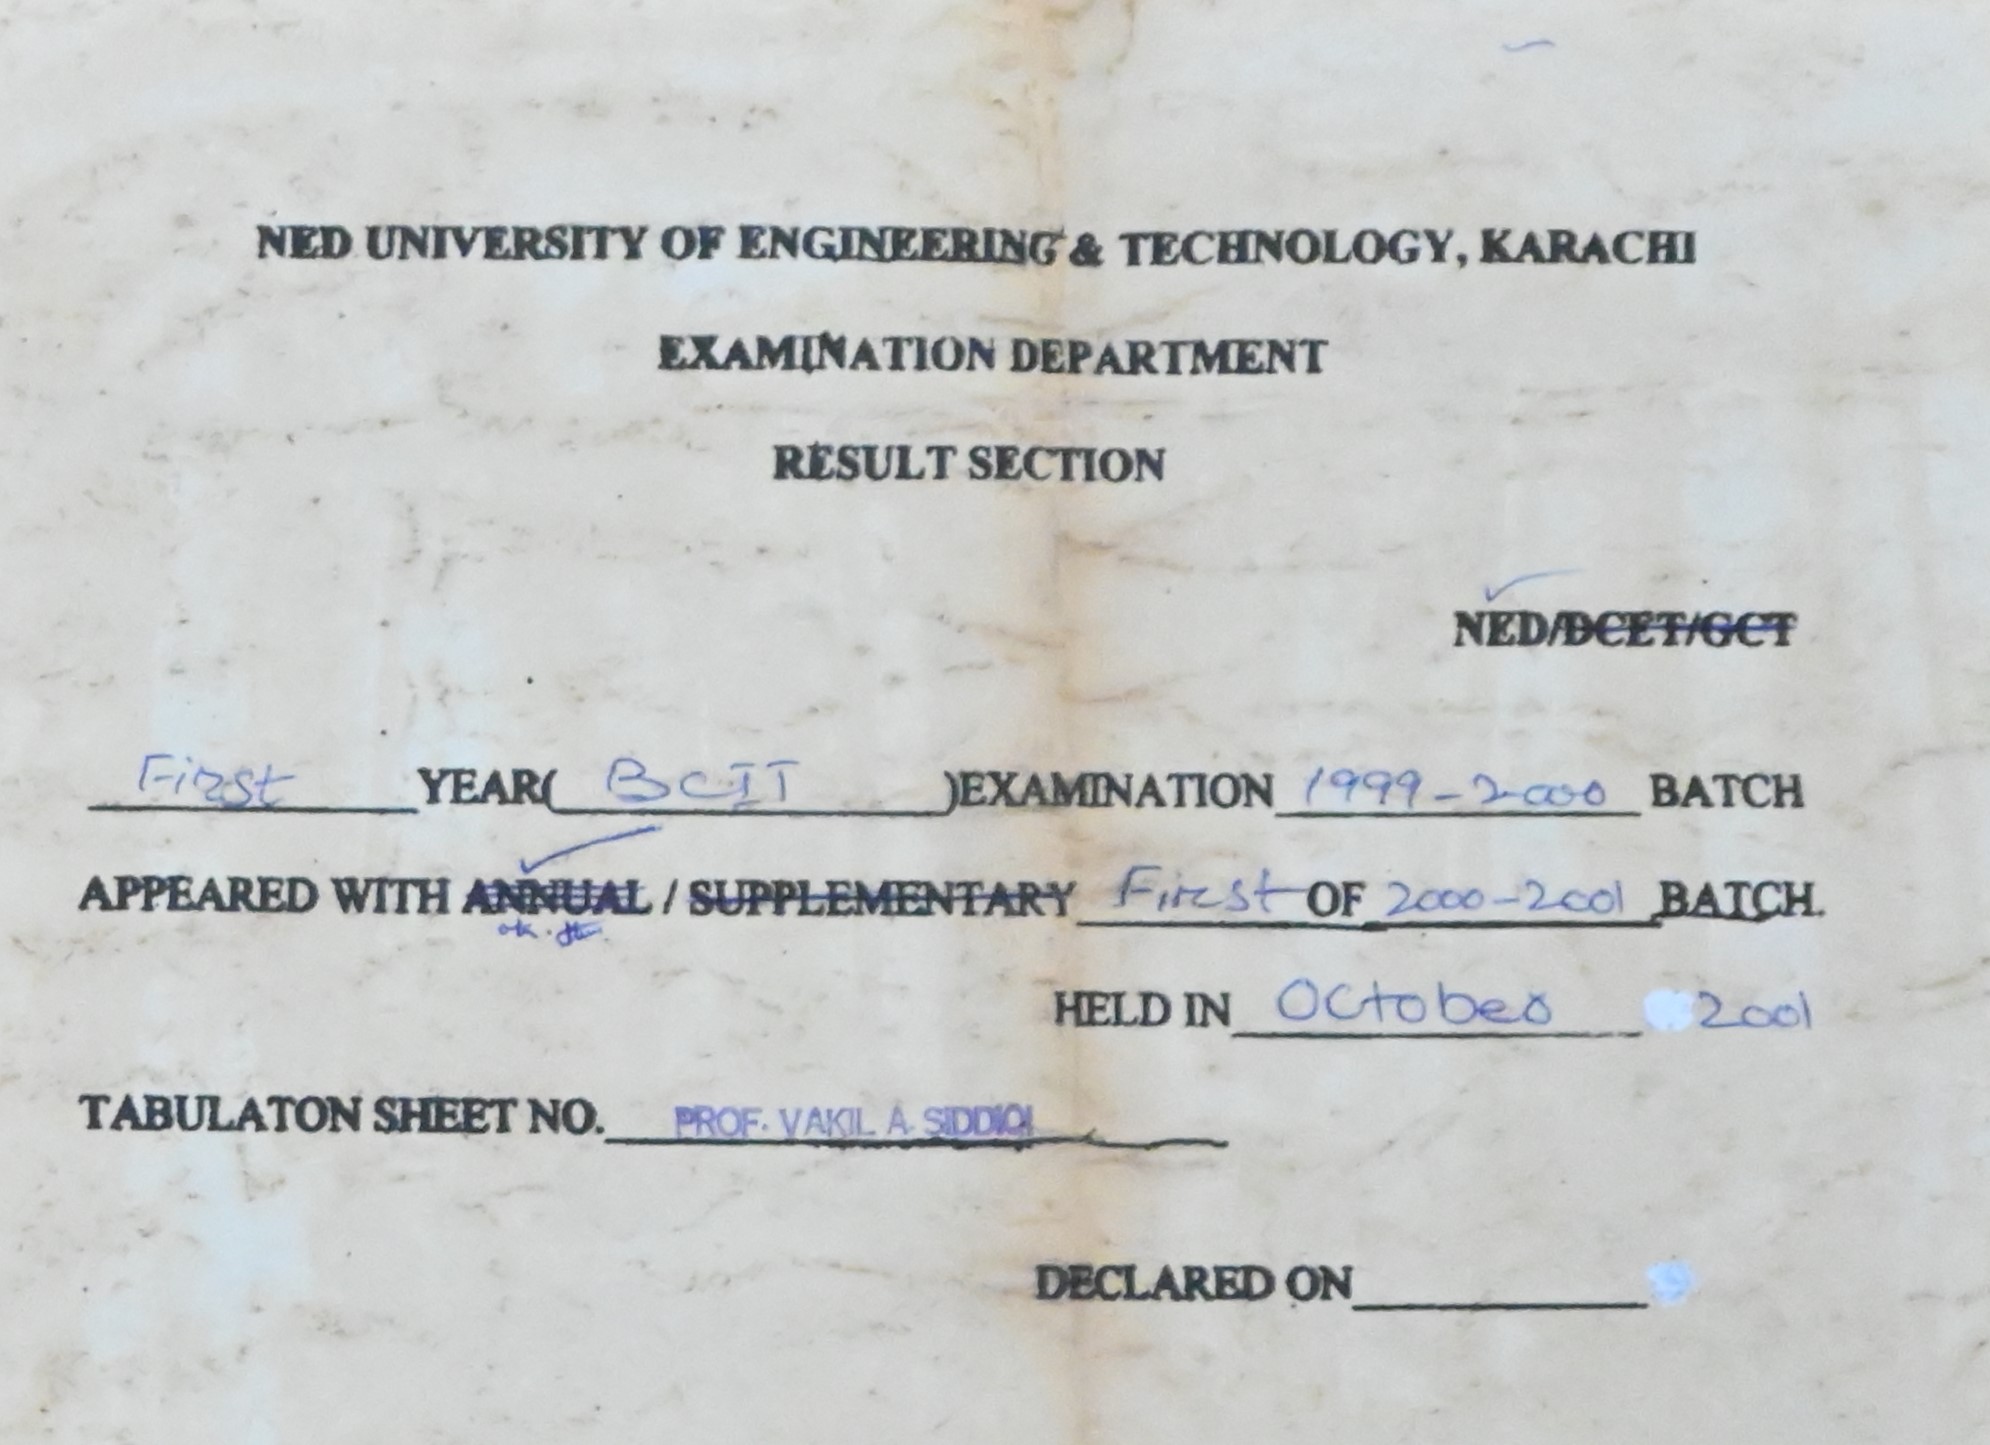 NED UNIVERSITY OF ENGINEERING & TECHNOLOGY, KARACHI
EXAMINATION DEPARTMENT
RESULT SECTION
NED/DCET/GCT
First YEAR( BCIT )EXAMINATION 1999-2000 BATCH
APPEARED WITH ANNUAL / SUPPLEMENTARY First OF 2000-2001 BATCH.
ok.
HELD IN October 2001
TABULATON SHEET NO. PROF. VAKIL A. SIDDIQI
DECLARED ON